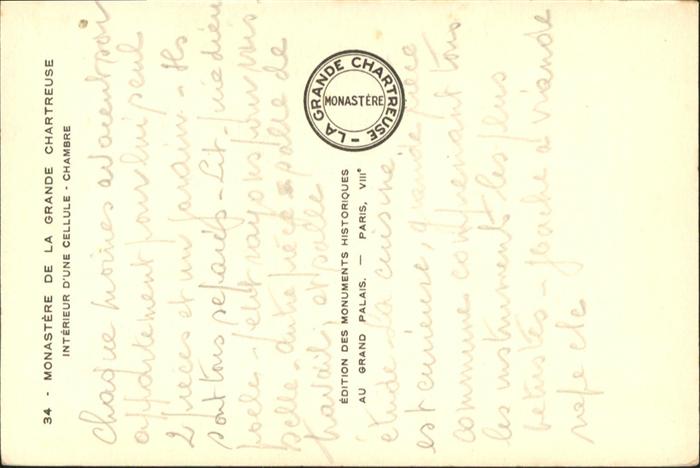 34 - MONASTÈRE DE LA GRANDE CHARTREUSE
INTÉRIEUR D'UNE CELLULE - CHAMBRE
chaque moines avaient son
appartement pour lui seul
2 pièces et un jardin - Ils
sont tous separés - Lit - prie dieu
poele - petit rayons pour
selle - autre pièce salle de
travail, et salle
étude. La cuisine
est curieuse, grande pièce
commune comprenant tous
les instruments les plus
- Hache a viande
rape etc
LA GRANDE CHARTREUSE -
MONASTÈRE
ÉDITION DES MONUMENTS HISTORIQUES
AU GRAND PALAIS. — PARIS, VIIIe